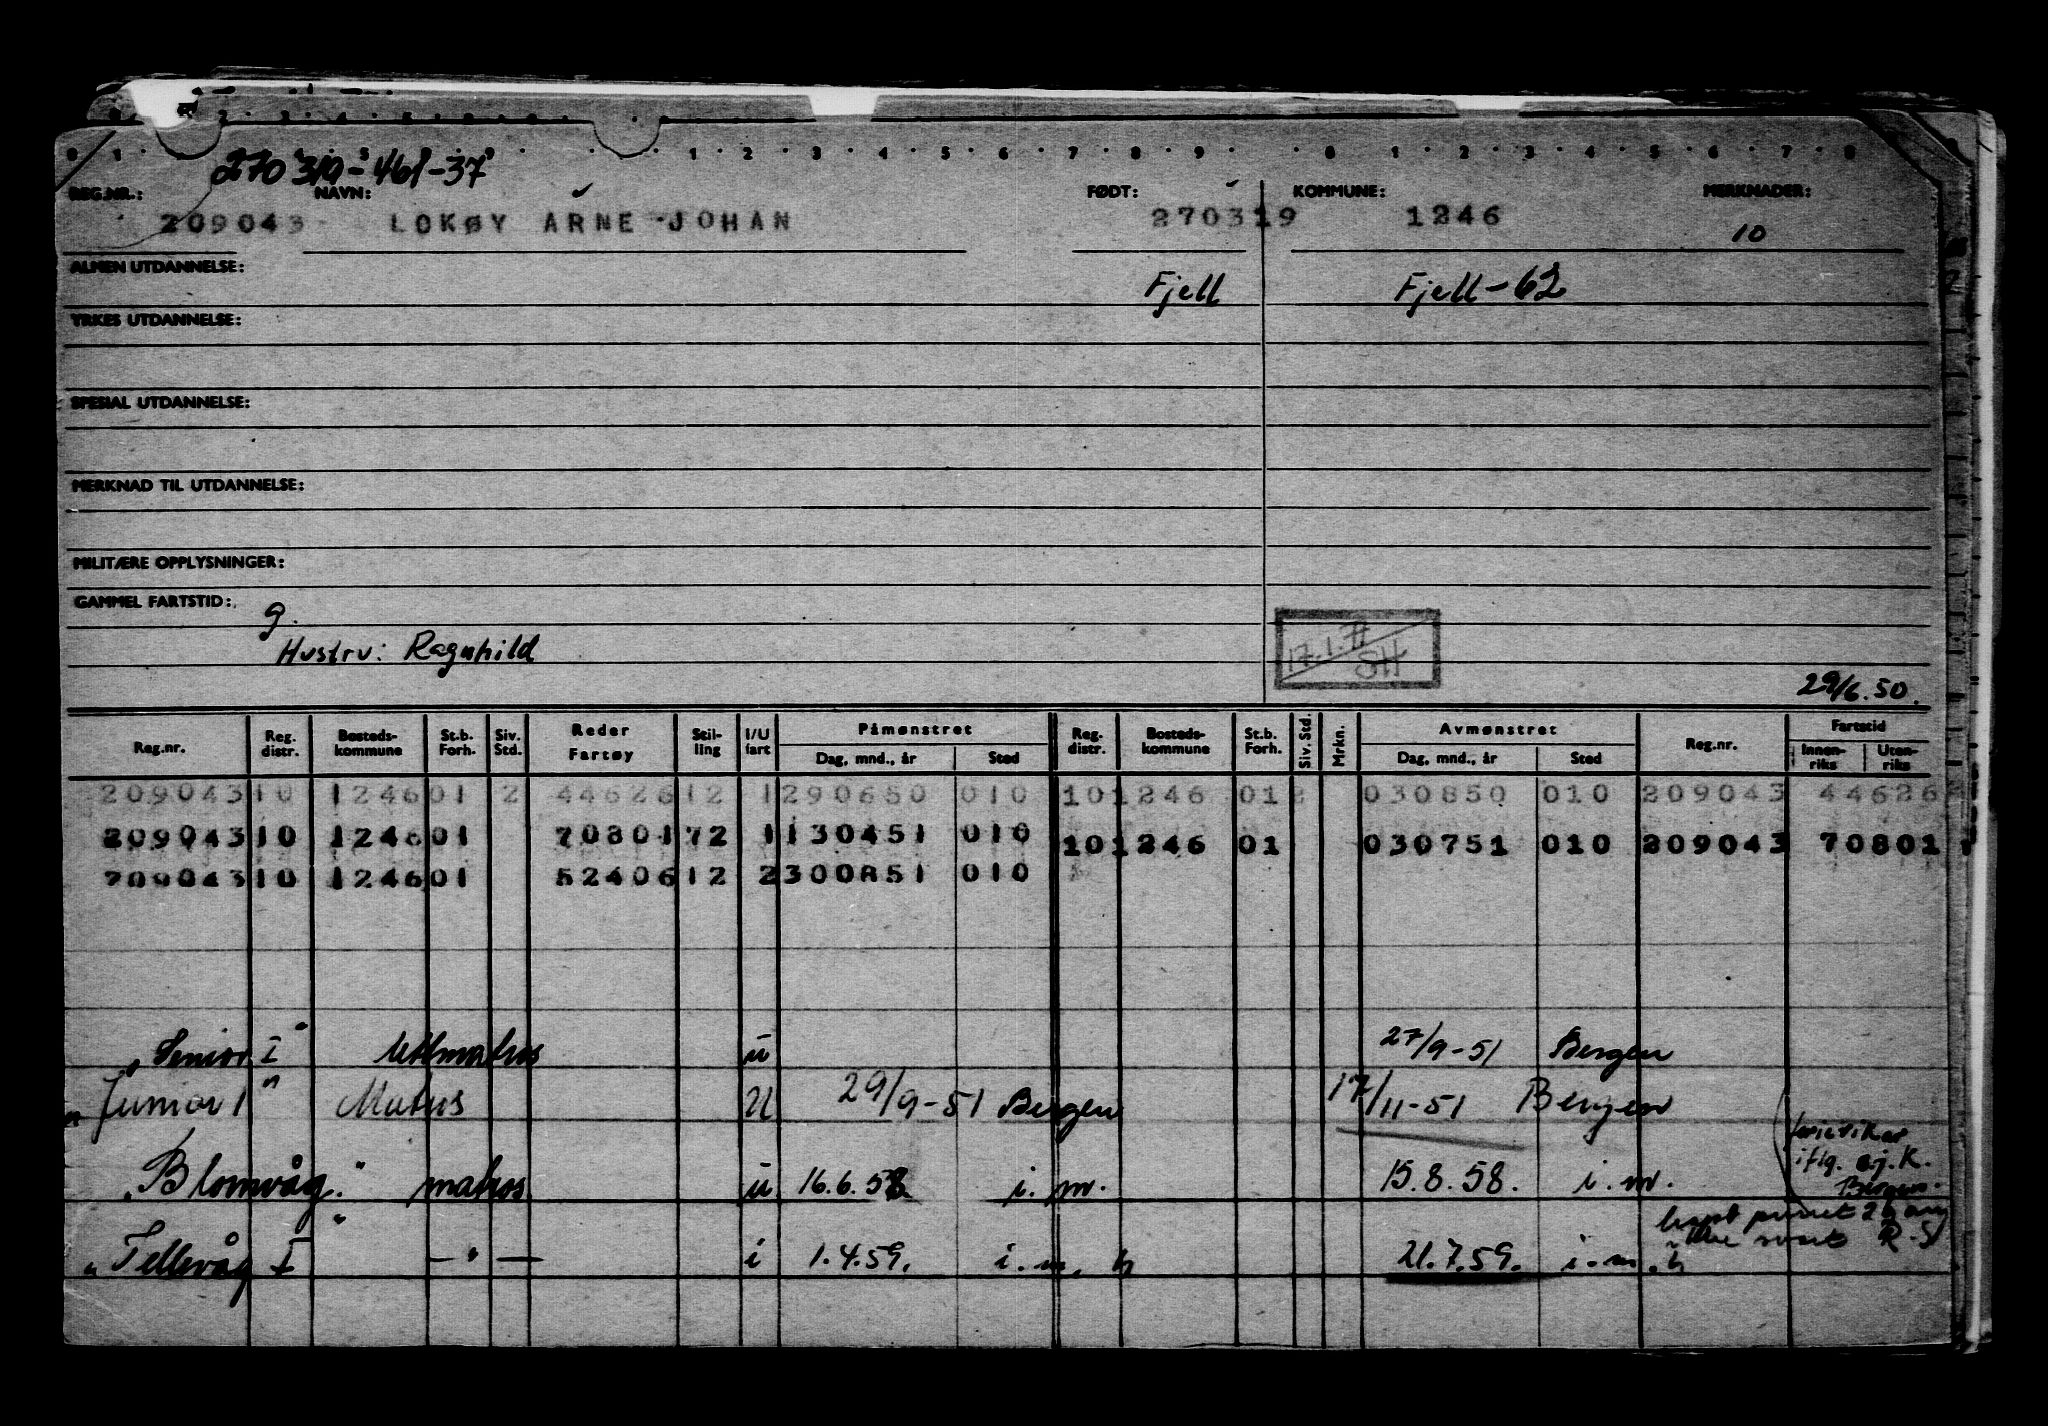 270319-461-37
REG.NR.: NAVN: FØDT: KOMMUNE: MERKNADER:
209043 LOKØY ARNE JOHAN 270319 1246 10
ALMEN UTDANNELSE:
Fjell Fjell-62
YRKES UTDANNELSE:
SPESIAL UTDANNELSE:
MERKNAD TIL UTDANNELSE:
MILITÆRE OPPLYSNINGER:
GAMMEL FARTSTID:
g.
Hustru: Ragnhild
17.1.
SH
29/6.50.
Reg.nr. Reg. distr. Bosteds-kommune St.b. Forh. Siv. Std. Reder Fartøy Stil-ling I/U fart Påmønstret Dag, mnd., år Sted Reg. distr. Bosteds-kommune St.b. Forh. Siv. Std. Mrkn. Avmønstret Dag, mnd., år Sted Reg.nr. Fartstid Innen-riks Uten-riks
209043 10 1246 01 2 44626 12 1 290650 010 10 1246 01 2 030850 010 209043 44626
209043 10 1246 01 70801 72 1 130451 010 10 1246 01 030751 010 209043 70801
209043 10 1246 01 52406 12 2 300851 010
"Senior I" lettmatros u 27/9-51 Bergen
"Junior I" Matros U 29/9-51 Bergen 17/11-51 Bergen
"Blomvåg" matros u 16.6.58 i.m. 15.8.58. i.m.
ferievikar
iflg. a.j.k.
Bergen.
"Tellevåg I" — " — i 1.4.59. i.m. 21.7.59. i.m.